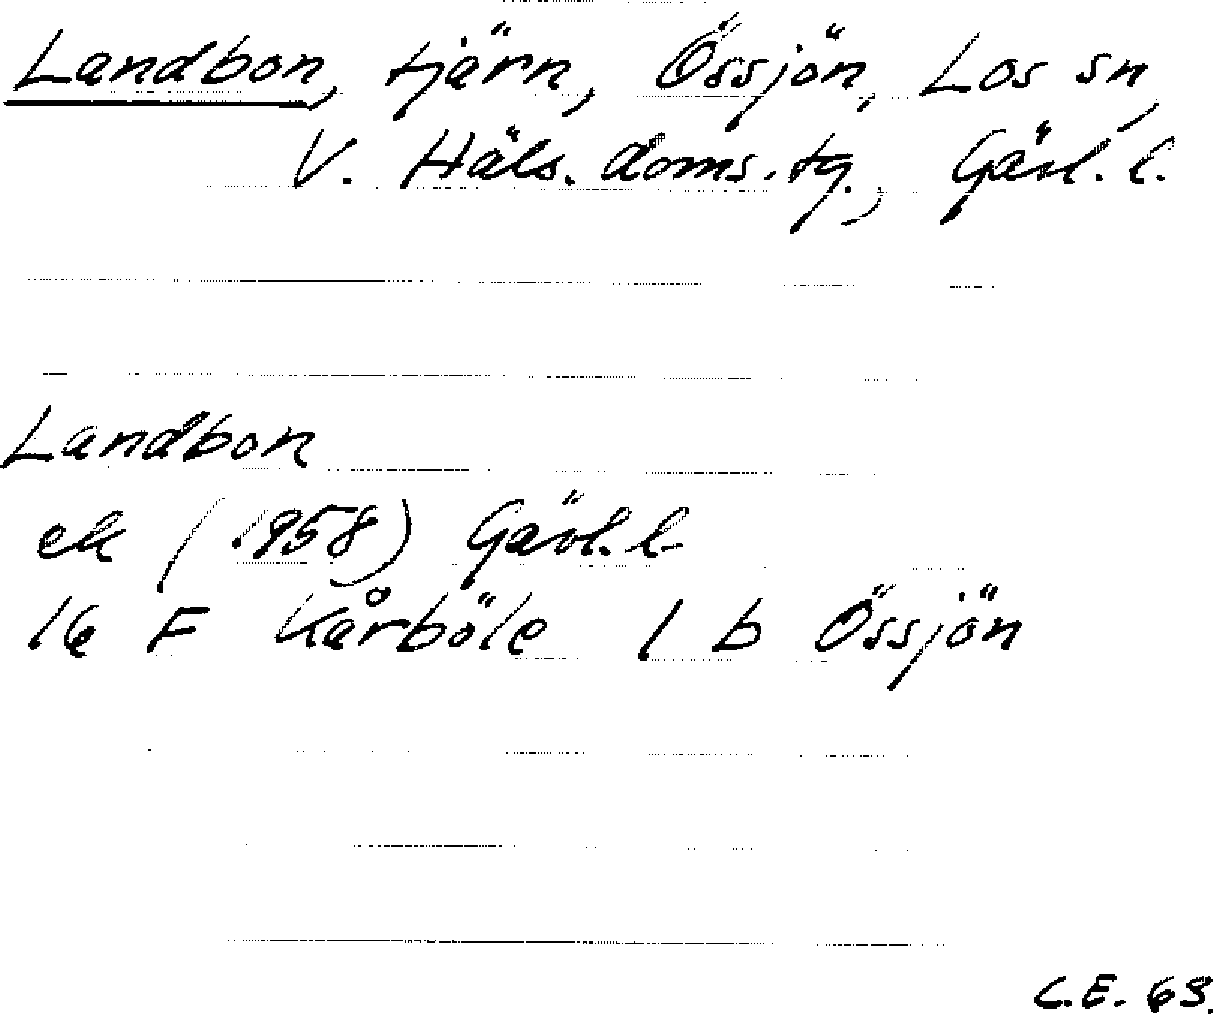 Landbon, tjärn, Össjön, Los sn,
V. Häls. doms.tg., Gävl. l.
Landbon
ek (1958) Gävl. l.
16 F Kårböle 1 b Össjön
C.E. 63.